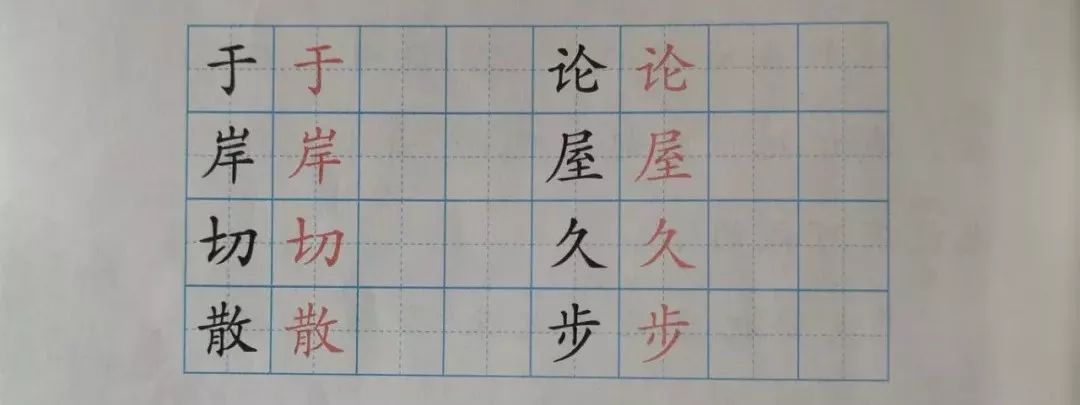 于 于 论 论
岸 岸 屋 屋
切 切 久 久
散 散 步 步